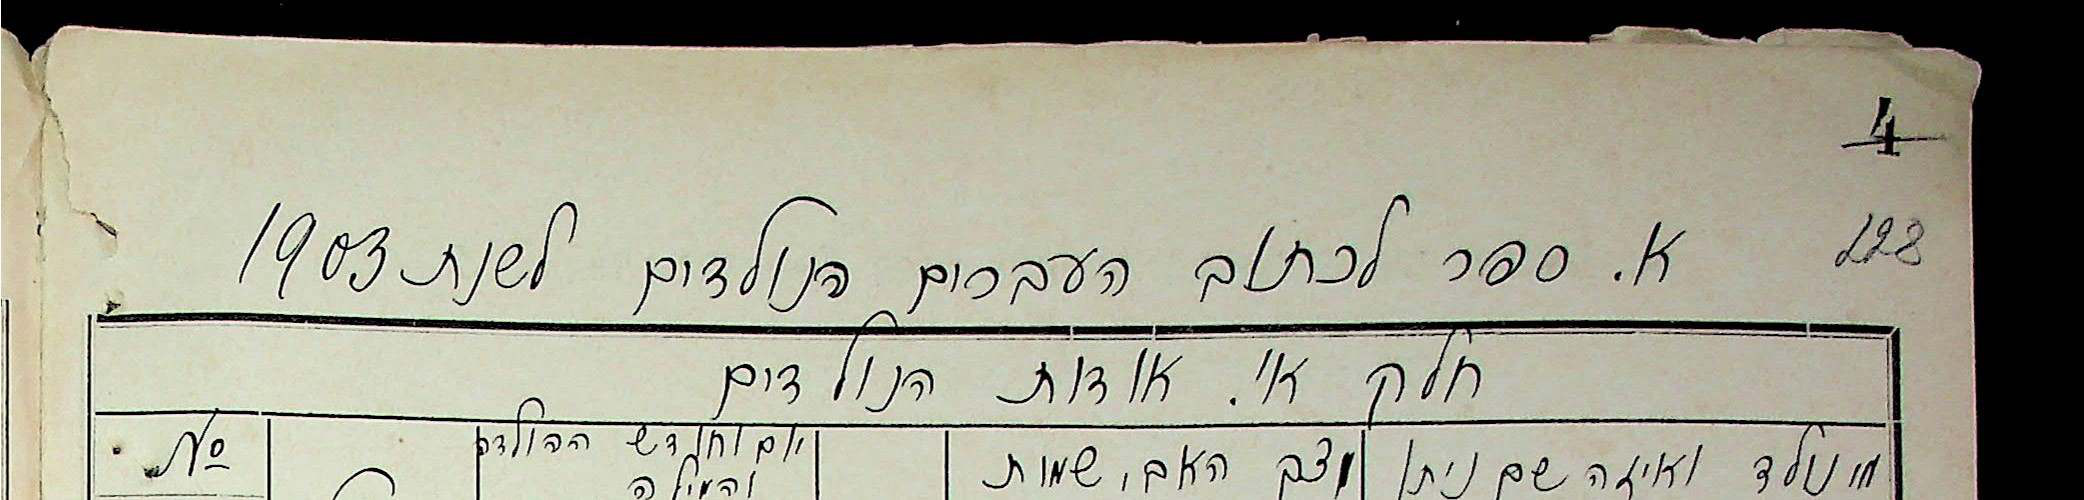 4
228
א. ספר לכתוב העברים הנולדים לשנת 1903
חלק א'. אודות הנולדים
מי נולד ואיזה שם ניתן
מצב האב, שמות
יום וחודש ההולדה
והמילה
№